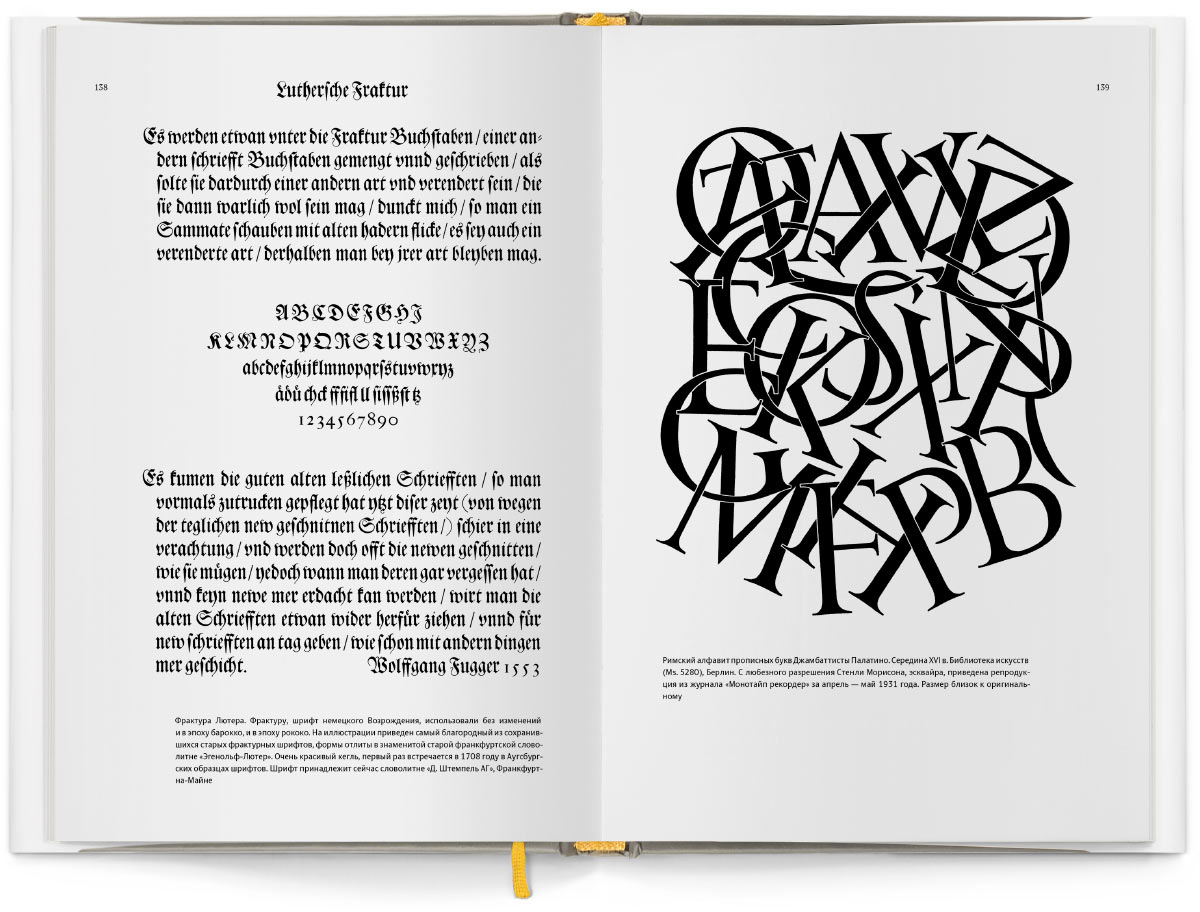 138
Lutherſche Fraktur
Es werden etwan vnter die Fraktur Buchſtaben / einer an-
dern ſchriefft Buchſtaben gemengt vnnd geſchrieben / als
ſolte ſie dardurch einer andern art vnd verendert ſein / die
ſie dann warlich wol ſein mag / dunckt mich / ſo man ein
Sammate ſchauben mit alten hadern flicke / es ſey auch ein
verenderte art / derhalben man bey jrer art bleyben mag.
ABCDEFGHJ
KLMNOPQRSTUVWXYZ
abcdefghijklmnopqrſstuvwxyz
äöü chck fffifl ll ſiſſßſt tz
1234567890
Es kumen die guten alten leßlichen Schriefften / ſo man
vormals zutrucken gepflegt hat ytzt diſer zeyt (von wegen
der teglichen new geſchnitnen Schriefften /) ſchier in eine
verachtung / vnd werden doch offt die newen geſchnitten /
wie ſie mügen / yedoch wann man deren gar vergeſſen hat /
vnnd keyn newe mer erdacht kan werden / wirt man die
alten Schriefften etwan wider herfür ziehen / vnnd für
new ſchriefften an tag geben / wie ſchon mit andern dingen
mer geſchicht. Wolffgang Fugger 1553
Фрактура Лютера. Фрактуру, шрифт немецкого Возрождения, использовали без изменений
и в эпоху барокко, и в эпоху рококо. На иллюстрации приведен самый благородный из сохранив-
шихся старых фрактурных шрифтов, формы отлиты в знаменитой старой франкфуртской слово-
литне «Эгенольф-Лютер». Очень красивый кегль, первый раз встречается в 1708 году в Аугсбург-
ских образцах шрифтов. Шрифт принадлежит сейчас словолитне «Д. Штемпель АГ», Франкфурт-
на-Майне
139
Римский алфавит прописных букв Джамбаттисты Палатино. Середина XVI в. Библиотека искусств
(Ms. 5280), Берлин. С любезного разрешения Стенли Морисона, эсквайра, приведена репродук-
ция из журнала «Монотайп рекордер» за апрель — май 1931 года. Размер близок к оригиналь-
ному